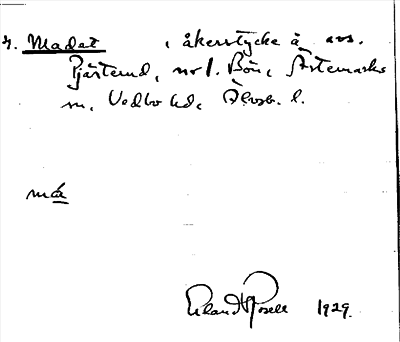 4. Madet , åkerstycke å avs.
Pjärterud, nr 1. Bön, Ärtemarks
sn, Vedbo hd, Älvsb. l.
må
Erland Rosell 1929.